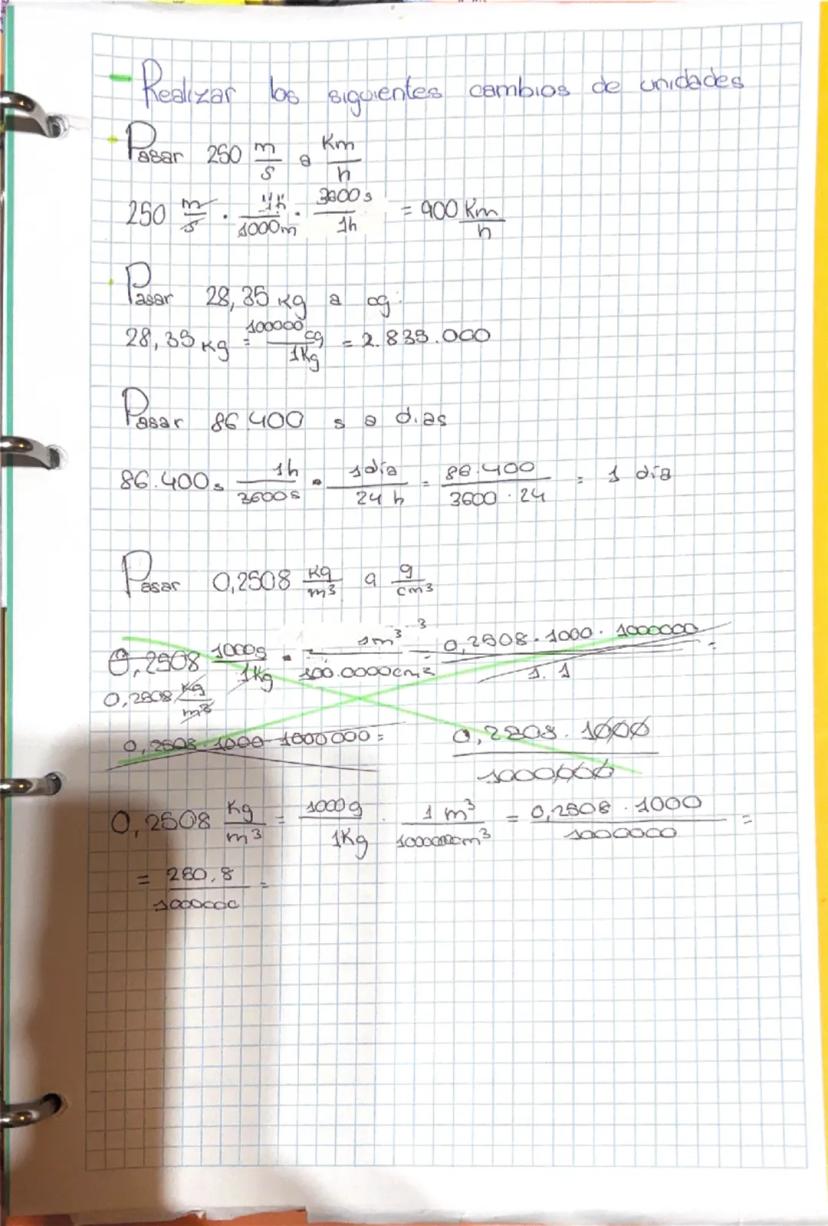 - Realizar los siguientes cambios de unidades
Pasar 250 m/s a Km/h
250 m/s · /1000m · 3600s/1h = 900 Km/h
Pasar 28,35 kg a cg:
28,35 kg = 100000cg/1Kg = 2.835.000
Pasar 86.400 s a dias
86.400s 1h/3600s · 1día/24 h = 86.400/3600 · 24 = 1 día
Pasar 0,2508 kg/m³ a g/cm³
0,2508 1000g/1Kg · 1m³ ³/100.0000cm² = 0,2508 · 1000 · 1000000/1. 1 =
0,2508 kg/m³
0,2508 · 1000 · 1000000 =
0,2208 · 1000/1000000
0,2508 Kg/m³ = 1000g/1Kg · 1 m³/1000000cm³ = 0,2508 · 1000/1000000 =
= 250,8/1000000 =